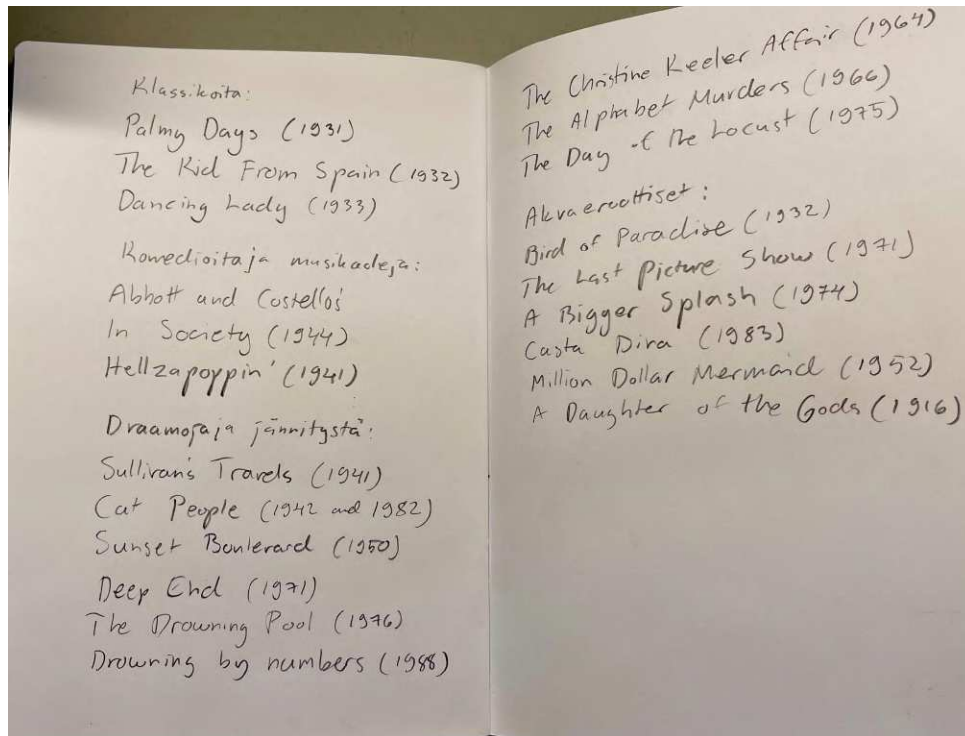 Klassikoita:
Palmy Days (1931)
The Kid From Spain (1932)
Dancing Lady (1933)
Komedioita ja musikaaleja:
Abbott and Costellos'
In Society (1944)
Hellzapoppin' (1941)
Draamoja ja jännitystä:
Sullivan's Travels (1941)
Cat People (1942 and 1982)
Sunset Boulevard (1950)
Deep End (1971)
The Drowning Pool (1976)
Drowning by numbers (1988)
The Christine Keeler Affair (1964)
The Alphabet Murders (1966)
The Day of the Locust (1975)
Akvaeroottiset:
Bird of Paradise (1932)
The Last Picture Show (1971)
A Bigger Splash (1974)
Casta Diva (1983)
Million Dollar Mermaid (1952)
A Daughter of the Gods (1916)